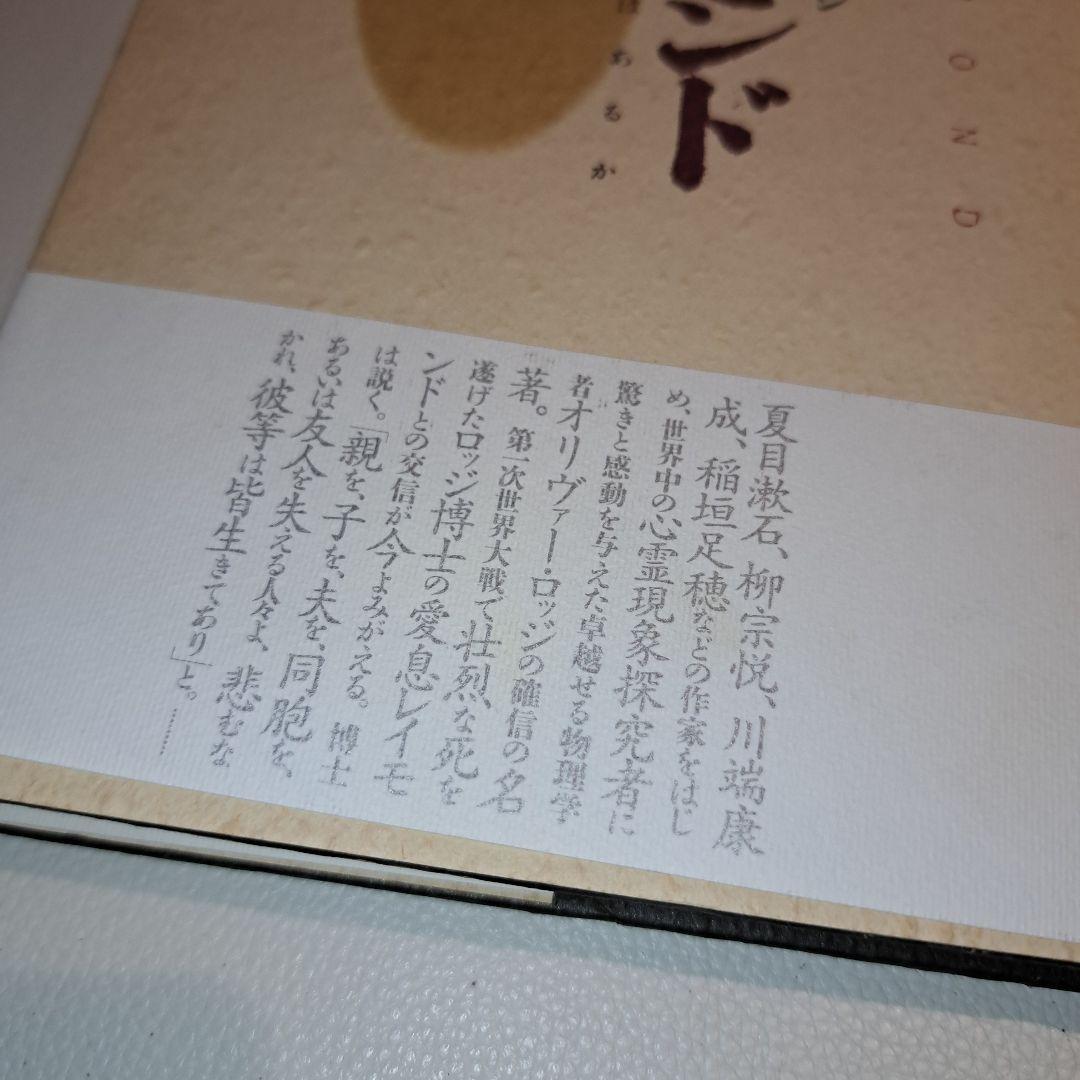 OND
ンド
はあるか
夏目漱石、柳宗悦、川端康
成、稲垣足穂などの作家をはじ
め、世界中の心霊現象探究者に
驚きと感動を与えた卓越せる物理学
者オリヴァー・ロッジの確信の名
著。第一次世界大戦で壮烈な死を
遂げたロッジ博士の愛息レイモ
ンドとの交信が今よみがえる。博士
は説く。「親を、子を、夫を、同胞を、
あるいは友人を失える人々よ、悲むな
かれ、彼等は皆生きてあり」と。………